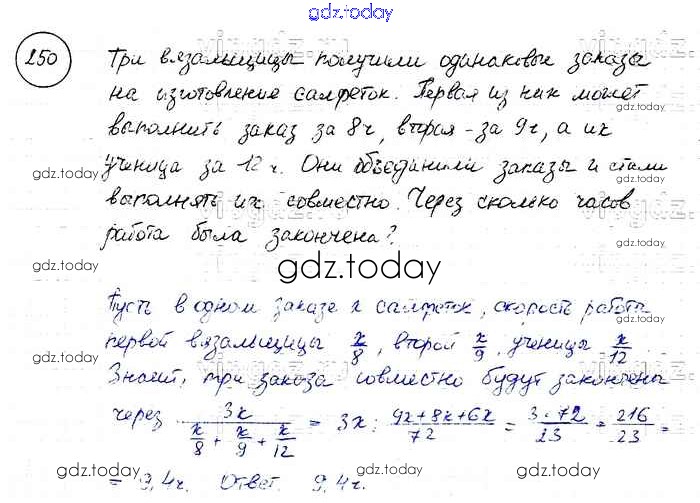 gdz.today
250
Три вязальщицы получили одинаковые заказы
на изготовление салфеток. Первая из них может
gdz.today
выполнить заказ за 8ч, вторая - за 9ч, а их
ученица за 12 ч. Они объединили заказы и стали
gdz.today
выполнять их совместно. Через сколько часов
работа была закончена?
gdz.today
gdz.today
Пусть в одном заказе x салфеток, скорость работы
первой вязальщицы x/8, второй x/9, ученицы x/12
gdz.today
Значит, три заказа совместно будут закончены
через 3x/(x/8 + x/9 + x/12) = 3x : (9x+8x+6x)/72 = 3·72/23 = 216/23 =
gdz.today
= 9,4ч. Ответ 9,4ч.
gdz.today
gdz.today